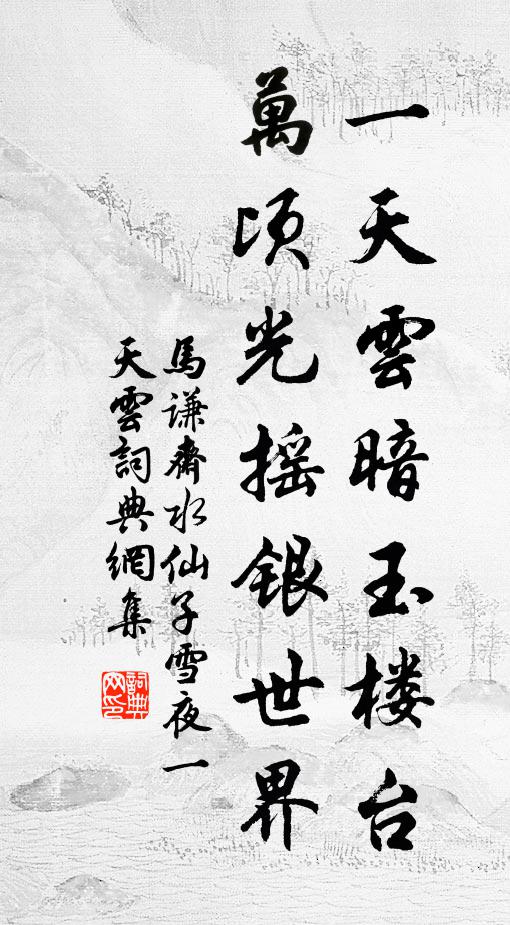 一天雲暗玉楼台
萬顷光摇银世界
馬谦齋水仙子雪夜一
天雲詞典網集
詞典
网印